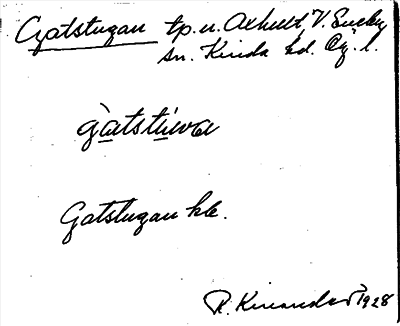 Gatstugan tp. u. Axhult, V. Eneby
sn. Kinda hd. Ög. l.
gàtstúwa
Gatstugan kb.
R. Kinander 1928